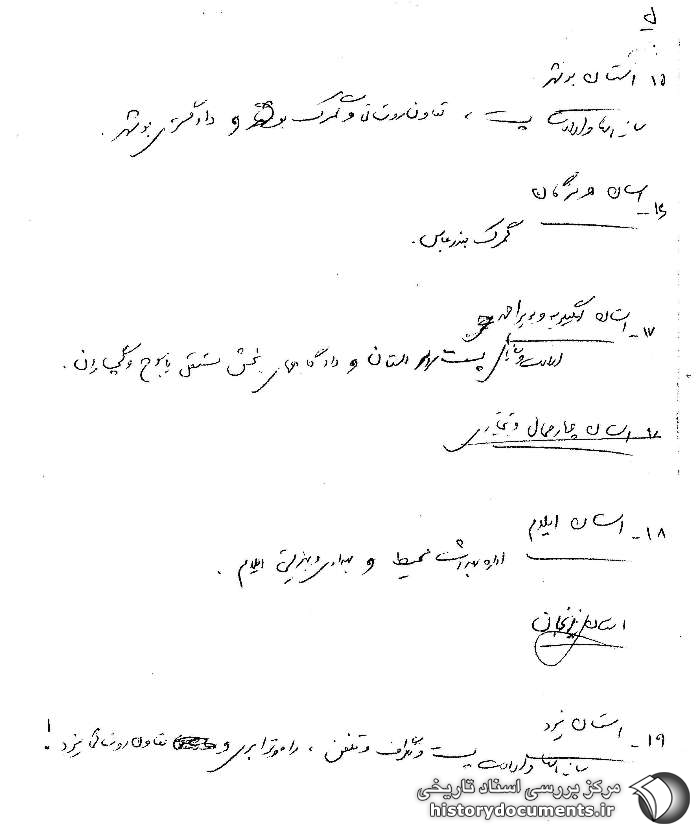 ۱۵ استان بوشهر
سازمانها و ادارات پست ، تعاون روستائی و گمرک بوشهر و دادگستری بوشهر .
۱۶- استان هرمزگان
گمرک بندرعباس .
۱۷- استان کهکیلویه و بویراحمد
ادارات پست استان و دادگاههای بخش مستقل یاسوج و گچساران .
استان چهارمحال و بختیاری
۱۸- استان ایلام
اداره بهداشت محیط و بهداری و بهزیستی ایلام .
استان زنجان
۱۹- استان یزد
سازمانها و ادارات پست و تلگراف و تلفن ، راه و ترابری و تعاون روستائی یزد !
مرکز بررسی اسناد تاریخی
historydocuments.ir